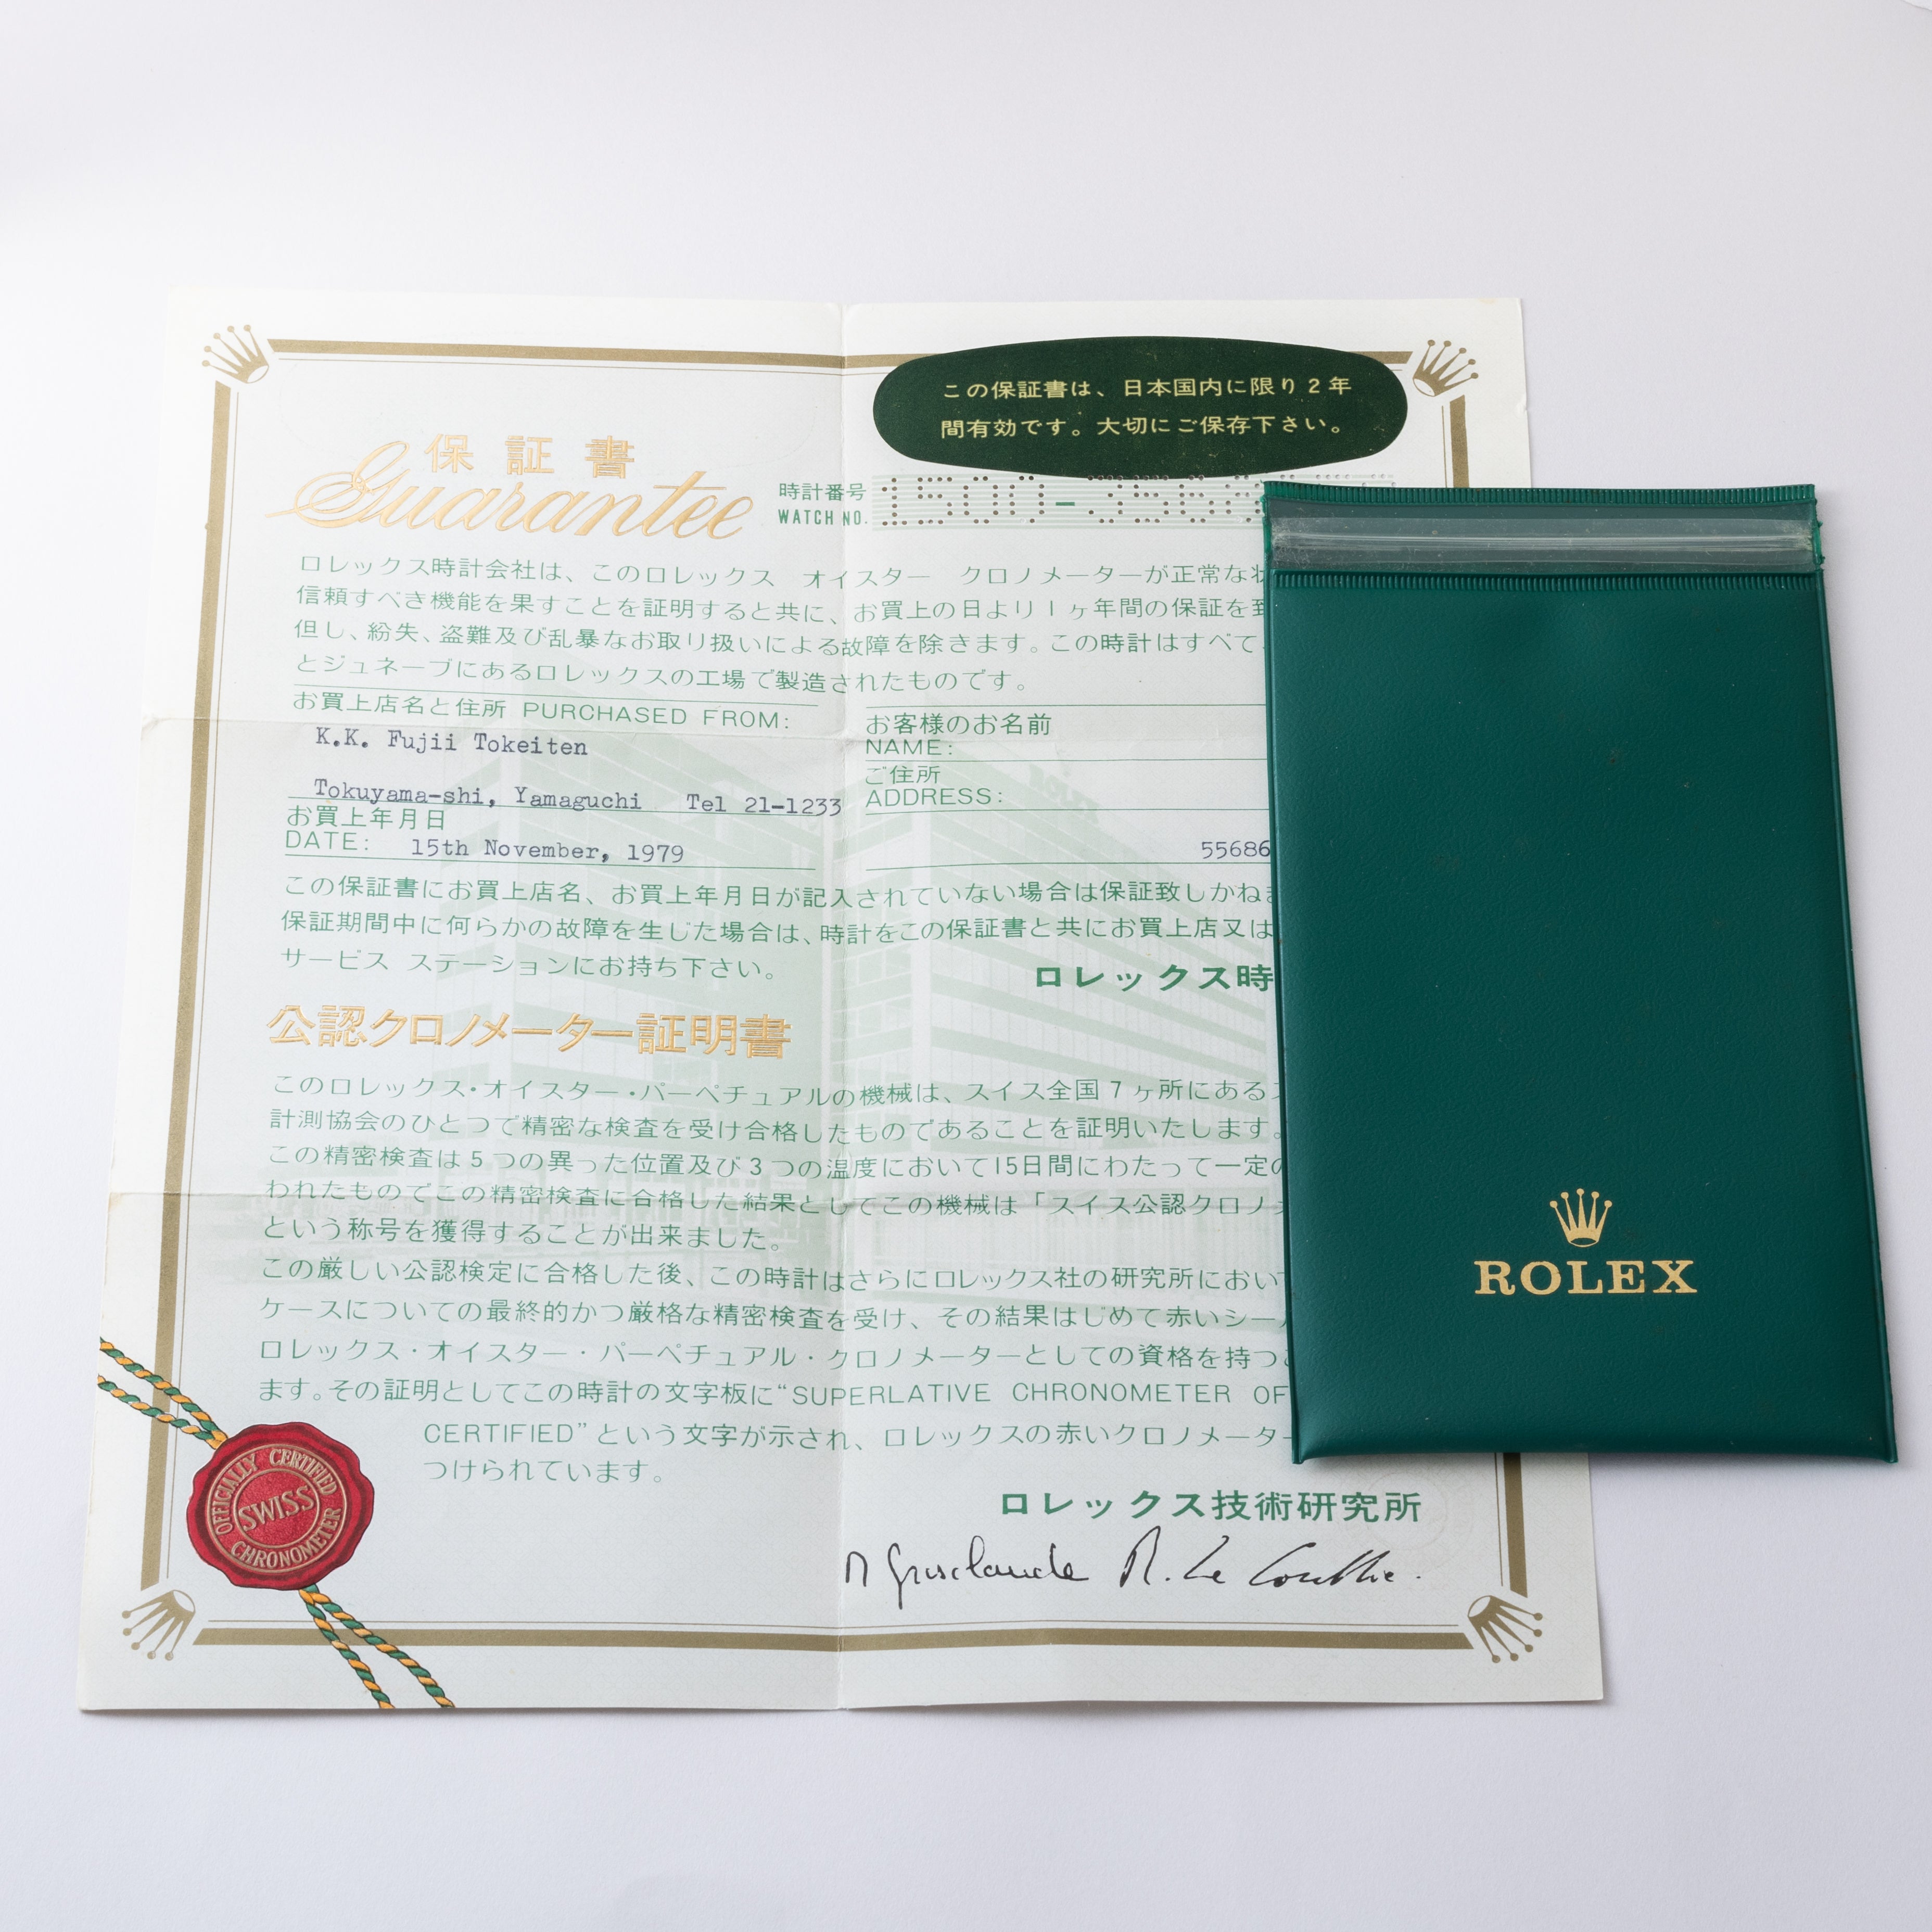 この保証書は、日本国内に限り2年
間有効です。大切にご保存下さい。
保証書
Guarantee
時計番号
WATCH NO.
1500-
ロレックス時計会社は、このロレックス オイスター クロノメーターが正常な
信頼すべき機能を果すことを証明すると共に、お買上の日より1ヶ年間の保証を
但し、紛失、盗難及び乱暴なお取り扱いによる故障を除きます。この時計はすべて
とジュネーブにあるロレックスの工場で製造されたものです。
お買上店名と住所 PURCHASED FROM:
K.K. Fujii Tokeiten
Tokuyama-shi, Yamaguchi Tel 21-1233
お買上年月日
DATE: 15th November, 1979
お客様のお名前
NAME:
ご住所
ADDRESS:
55686
この保証書にお買上店名、お買上年月日が記入されていない場合は保証致しかね
保証期間中に何らかの故障を生じた場合は、時計をこの保証書と共にお買上店又は
サービス ステーションにお持ち下さい。
ロレックス時
公認クロノメーター証明書
このロレックス・オイスター・パーペチュアルの機械は、スイス全国7ヶ所にある
計測協会のひとつで精密な検査を受け合格したものであることを証明いたします。
この精密検査は5つの異った位置及び3つの温度において15日間にわたって一定の
われたものでこの精密検査に合格した結果としてこの機械は「スイス公認クロノ
という称号を獲得することが出来ました。
この厳しい公認検定に合格した後、この時計はさらにロレックス社の研究所におい
ケースについての最終的かつ厳格な精密検査を受け、その結果はじめて赤いシー
ロレックス・オイスター・パーペチュアル・クロノメーターとしての資格を持つ
ます。その証明としてこの時計の文字板に“SUPERLATIVE CHRONOMETER OF
CERTIFIED”という文字が示され、ロレックスの赤いクロノメーター
つけられています。
ロレックス技術研究所
OFFICIALLY CERTIFIED
SWISS
CHRONOMETER
ROLEX